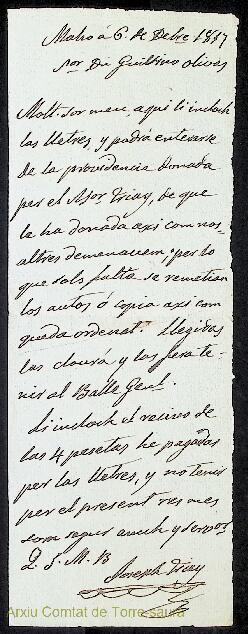 Mahó á 6 de Debre 1817
Sor Dn Guillmo Olives
Molt Sor meu, aqui li incloch
las lletres, y podrá enterarse
de la providencia donada
per el Asor Triay, de que
la ha donada axi com nos-
altres demanavem, per lo
que sols falta se remetian
los autos ó copia axi com
queda ordenat. Llegidas
las clourá y las fera te-
nir al Balle Genl.
Li incloch el recivo de
las 4 pesetas he pagadas
per las lletres, y no tenir
per el present res mes
som segur amich y servor
Q. S. M. B
Joseph Triay
Arxiu Comtat de Torre-saura